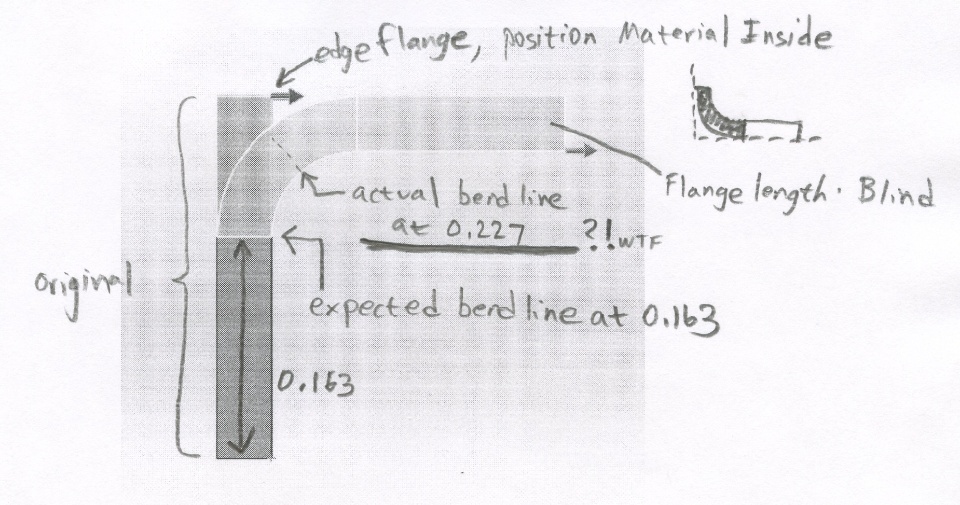 edge flange, position Material Inside
Flange length · Blind
actual bend line
at 0.227 ?! WTF
original
expected bend line at 0.163
0.163